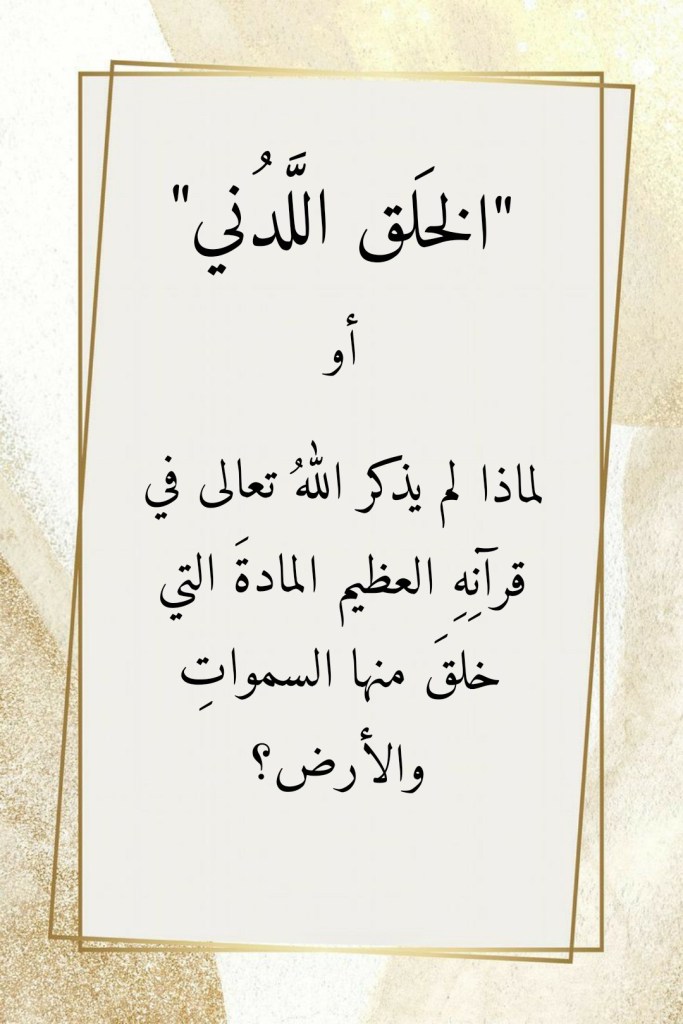 "الخَلق اللَّدُني"
أو
لماذا لم يذكر اللهُ تعالى في
قرآنِهِ العظيم المادةَ التي
خلقَ منها السمواتِ
والأرض؟